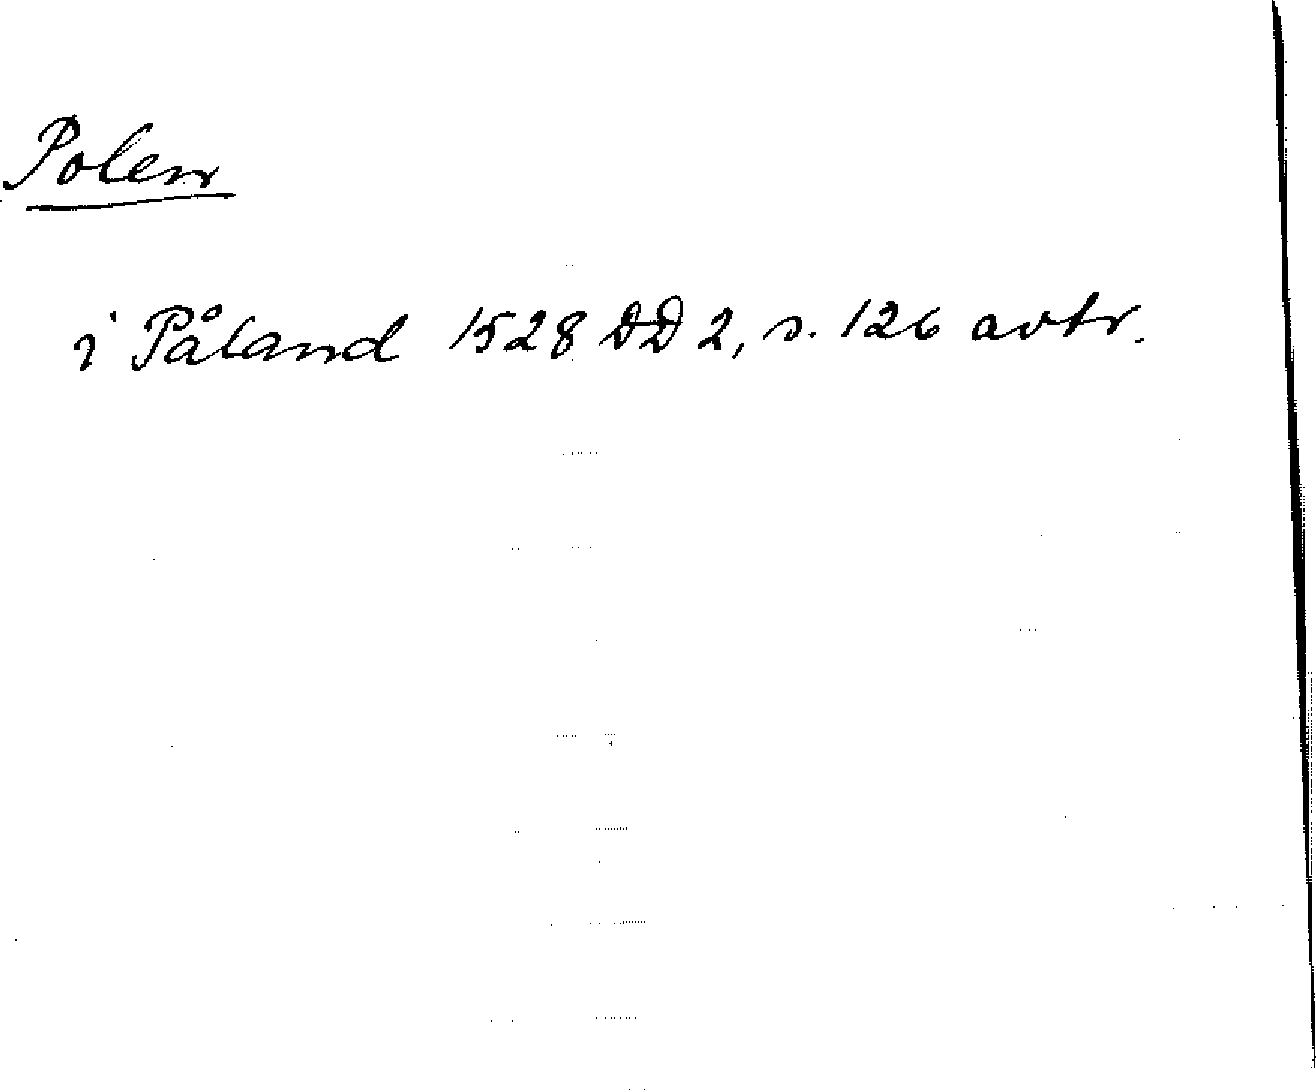 Polen
i Påland 1528 DD 2, s. 126 avtr.